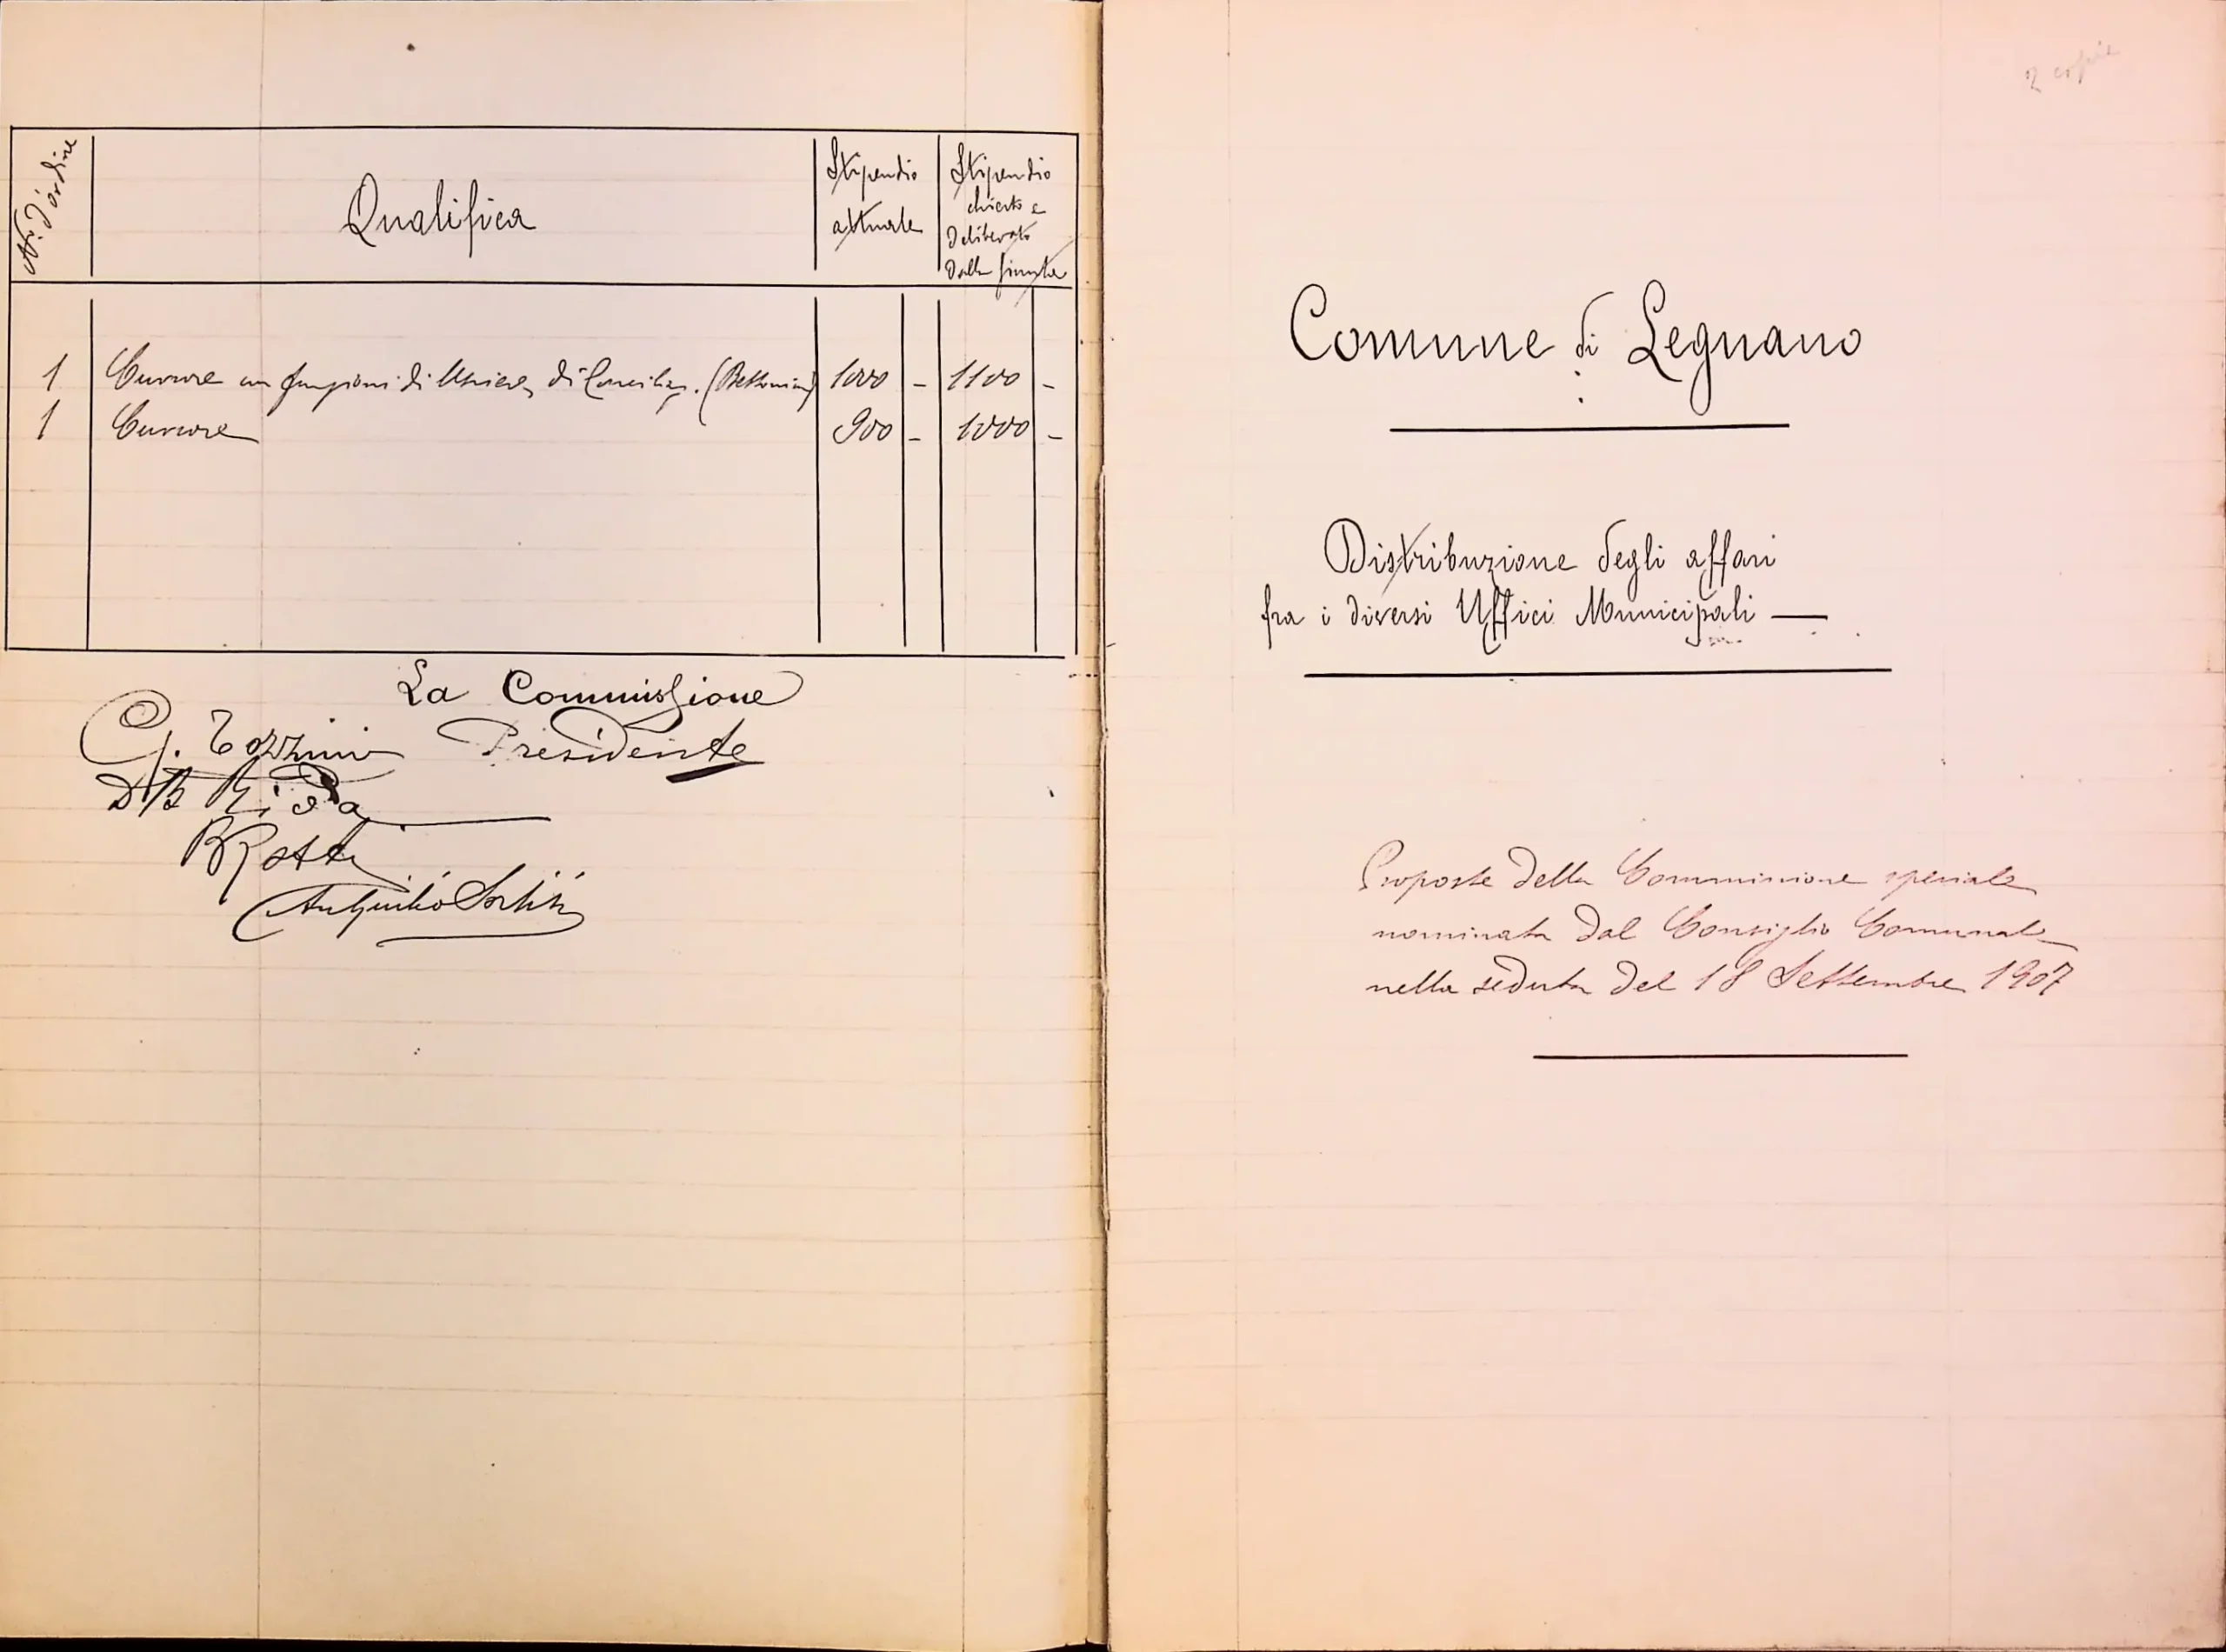 N. d'ordine
Qualifica
Stipendio
attuale
Stipendio
chiesto e
deliberato
dalla Giunta
1 Cursore con funzioni di Usciere di Conciliaz. (Bettonini) 1000 - 1100 -
1 Cursore 900 - 1000 -
La Commissione
G. Tozzini Presidente
Riva
B Rotta
2 copie
Comune di Legnano
Distribuzione degli affari
fra i diversi Uffici Municipali —
Proposte della Commissione speciale
nominata dal Consiglio Comunale
nella seduta del 18 Settembre 1907